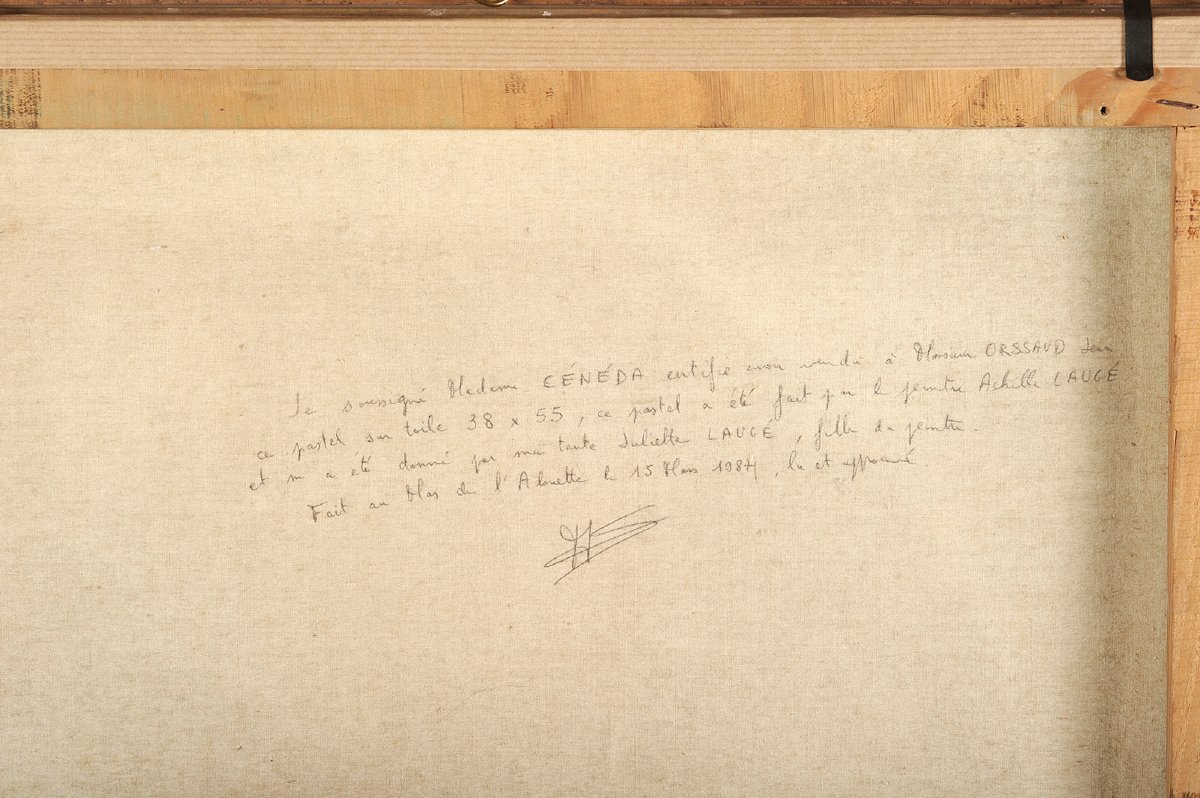 Je soussigné Madame CÉNÉDA certifie avoir vendu à Monsieur ORSSAUD Jean
ce pastel sur toile 38 x 55, ce pastel a été fait par le peintre Achille LAUGÉ
et m'a été donné par ma tante Juliette LAUGÉ, fille du peintre.
Fait au Mas de l'Alouette le 15 Mars 1984, lu et approuvé